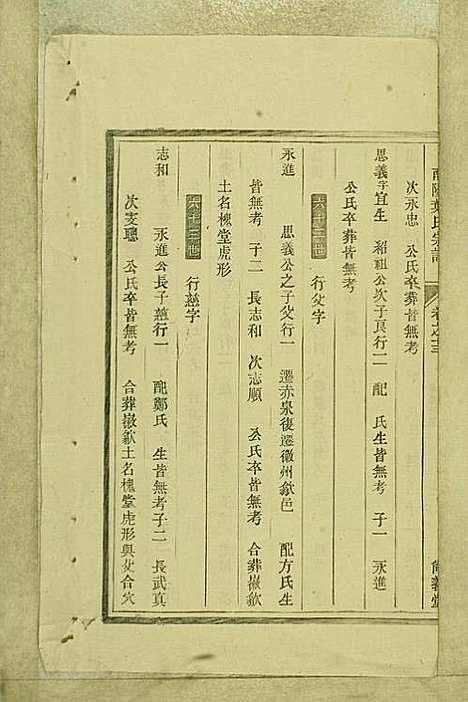 南陽葉氏宗譜 卷之十三 尙義堂
次永忠 公氏卒葬皆無考
思義字宜生 紹祖公次子良行二 配 氏生皆無考 子一 永進
公氏卒葬皆無考
六十二世 行父字
永進 思義公之子父行一 遷赤泉復遷徽州歙邑 配方氏生
皆無考 子二 長志和 次志順 公氏卒皆無考 合葬徽歙
土名槐堂虎形
六十三世 行慈字
志和 永進公長子慈行一 配鄭氏 生皆無考子二 長武真
次支聰 公氏卒皆無考 合葬徽歙土名槐堂虎形與父合穴